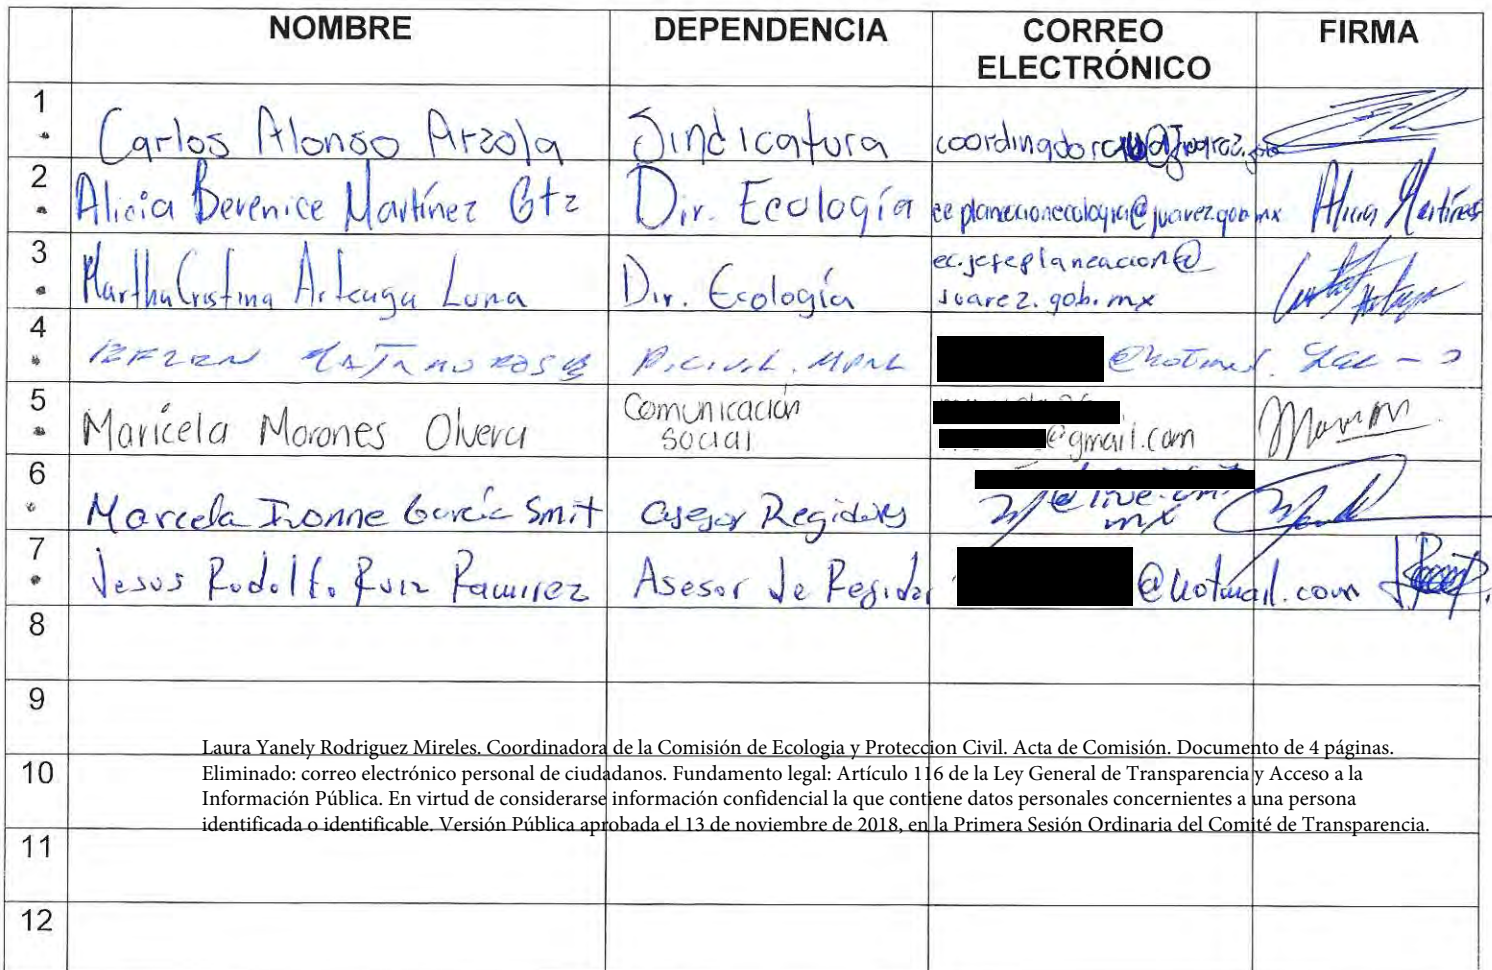 NOMBRE DEPENDENCIA CORREO ELECTRÓNICO FIRMA
1 Carlos Alonso Arzola Sindicatura
2 Alicia Berenice Martínez Gtz Dir. Ecología Alicia Martínez
3 Martha Cristina Arteaga Luna Dir. Ecología ec.jefeplaneacion@
juarez.gob.mx
4 P. Civil. MPAL @hotmail.
5 Maricela Morones Olvera Comunicación
social @gmail.com
6 Marcela Ivonne García Smit asesor Regidores
mx
7 Jesus Rodolfo Ruiz Ramirez Asesor de Regidor @hotmail.com
8
9
Laura Yanely Rodriguez Mireles. Coordinadora de la Comisión de Ecologia y Proteccion Civil. Acta de Comisión. Documento de 4 páginas.
10 Eliminado: correo electrónico personal de ciudadanos. Fundamento legal: Artículo 116 de la Ley General de Transparencia y Acceso a la
Información Pública. En virtud de considerarse información confidencial la que contiene datos personales concernientes a una persona
identificada o identificable. Versión Pública aprobada el 13 de noviembre de 2018, en la Primera Sesión Ordinaria del Comité de Transparencia.
11
12